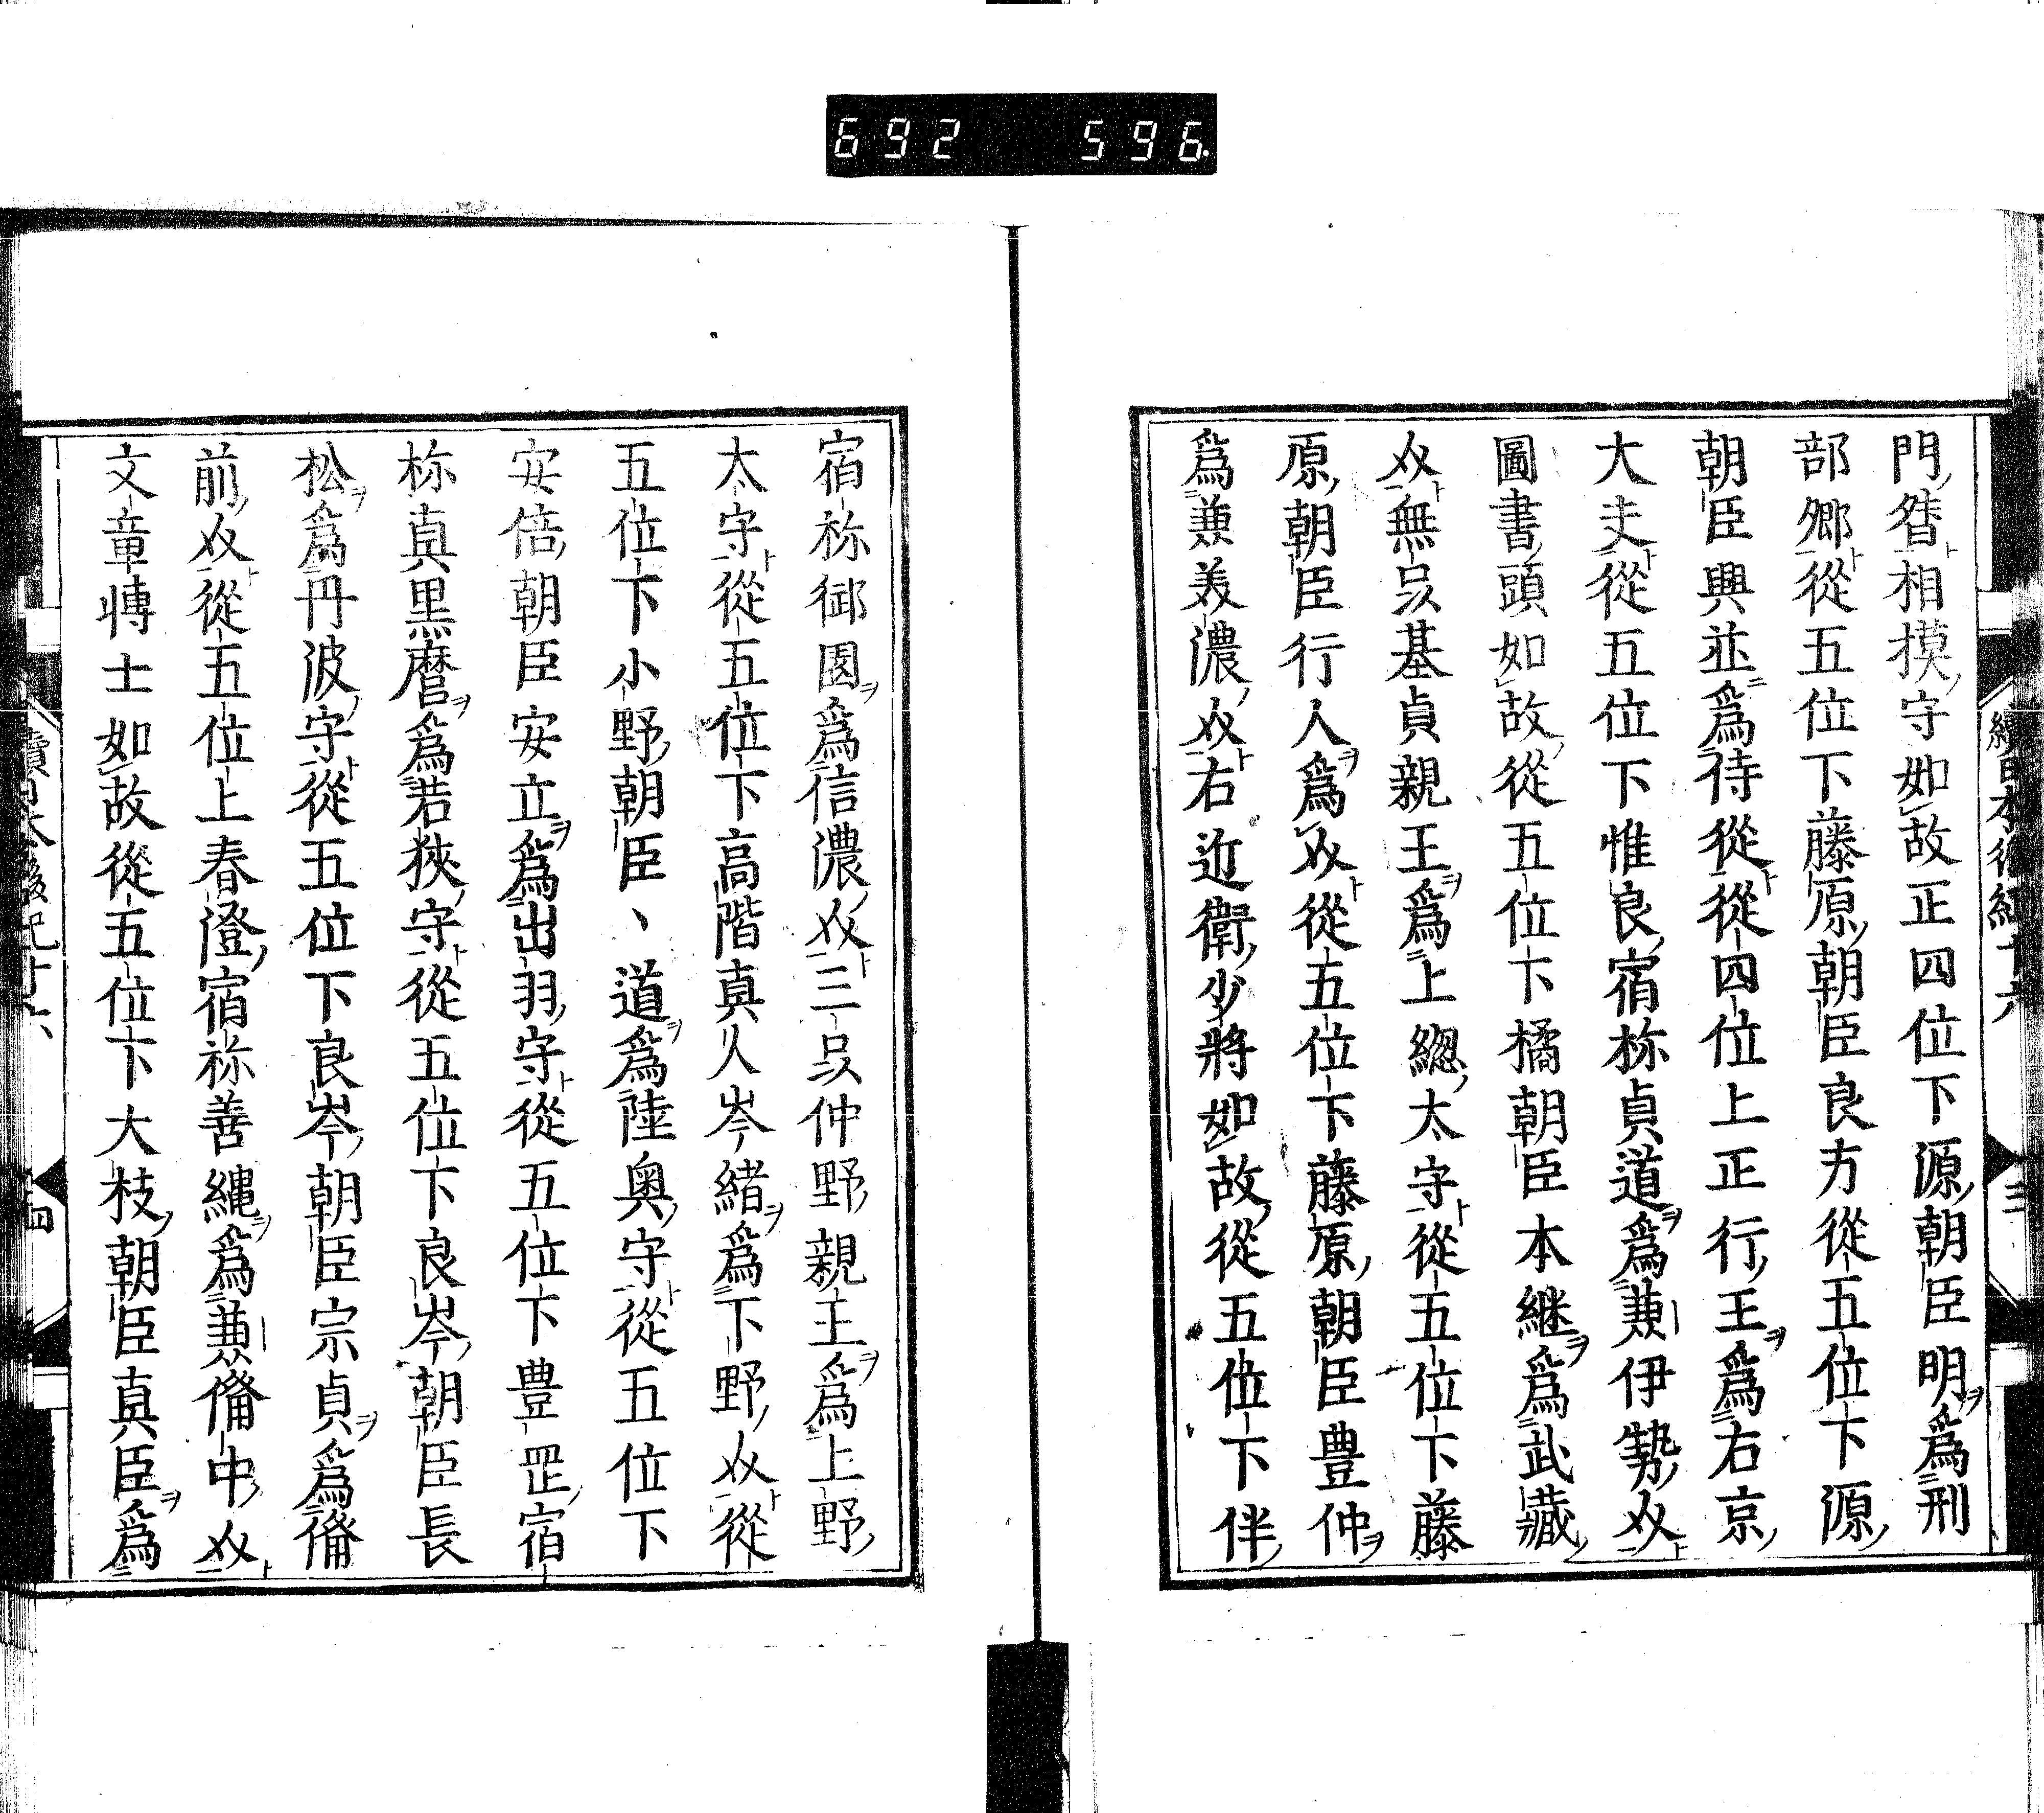 692 596.
續日本後紀十六 三
門督相摸守如故正四位下源朝臣明爲刑
部卿從五位下藤原朝臣良方從五位下源
朝臣興並爲侍從從四位上正行王爲右京
大夫從五位下惟良宿祢貞道爲兼伊勢𠆢
圖書頭如故從五位下橘朝臣本継爲武藏
𠆢無品基貞親王爲上總太守從五位下藤
原朝臣行人爲𠆢從五位下藤原朝臣豊仲
爲兼美濃𠆢右近衛少將如故從五位下伴
宿祢御園爲信濃𠆢三品仲野親王爲上野
太守從五位下高階真人岑緒爲下野𠆢從
五位下小野朝臣、道爲陸奥守從五位下
安倍朝臣安立爲出羽守從五位下豊罡宿
祢真黒麿爲若狹守從五位下良岑朝臣長
松爲丹波守從五位下良岑朝臣宗貞爲俻
前𠆢從五位上春澄宿祢善縄爲兼俻中𠆢
文章博士如故從五位下大枝朝臣真臣爲
續日本後紀十六 四